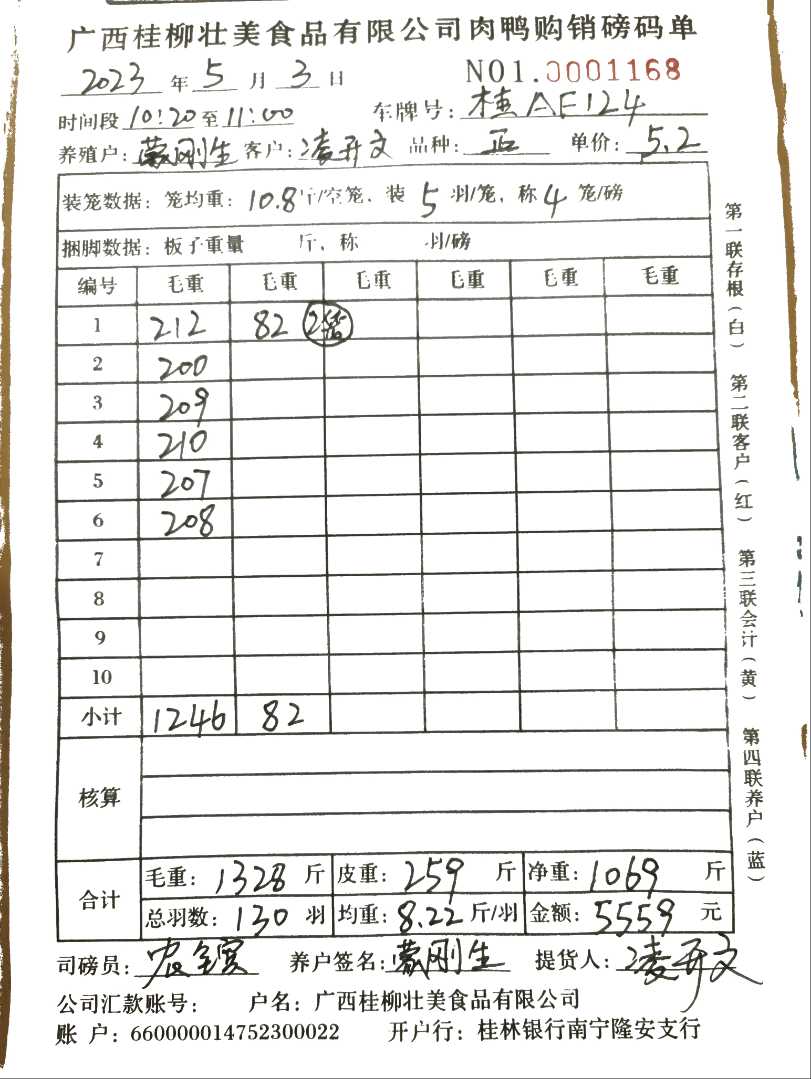 广西桂柳壮美食品有限公司肉鸭购销磅码单
2023 年 5 月 3 日 NO1.0001168
时间段 10:20 至 11:00 车牌号: 桂AF124
养殖户: 蒙刚生 客户: 凌开文 品种: 正 单价: 5.2
装笼数据: 笼均重: 10.8 斤/空笼、装 5 羽/笼, 称 4 笼/磅
捆脚数据: 板子重量 斤, 称 羽/磅
编号 毛重 毛重 毛重 毛重 毛重 毛重
1 212 82 2笼
2 200
3 209
4 210
5 207
6 208
7
8
9
10
小计 1246 82
核算
合计 毛重: 1328 斤 皮重: 259 斤 净重: 1069 斤
总羽数: 130 羽 均重: 8.22 斤/羽 金额: 5559 元
司磅员: 养户签名: 蒙刚生 提货人: 凌开文
公司汇款账号: 户名: 广西桂柳壮美食品有限公司
账 户: 660000014752300022 开户行: 桂林银行南宁隆安支行
第一联存根(白) 第二联客户(红) 第三联会计(黄) 第四联养户(蓝)